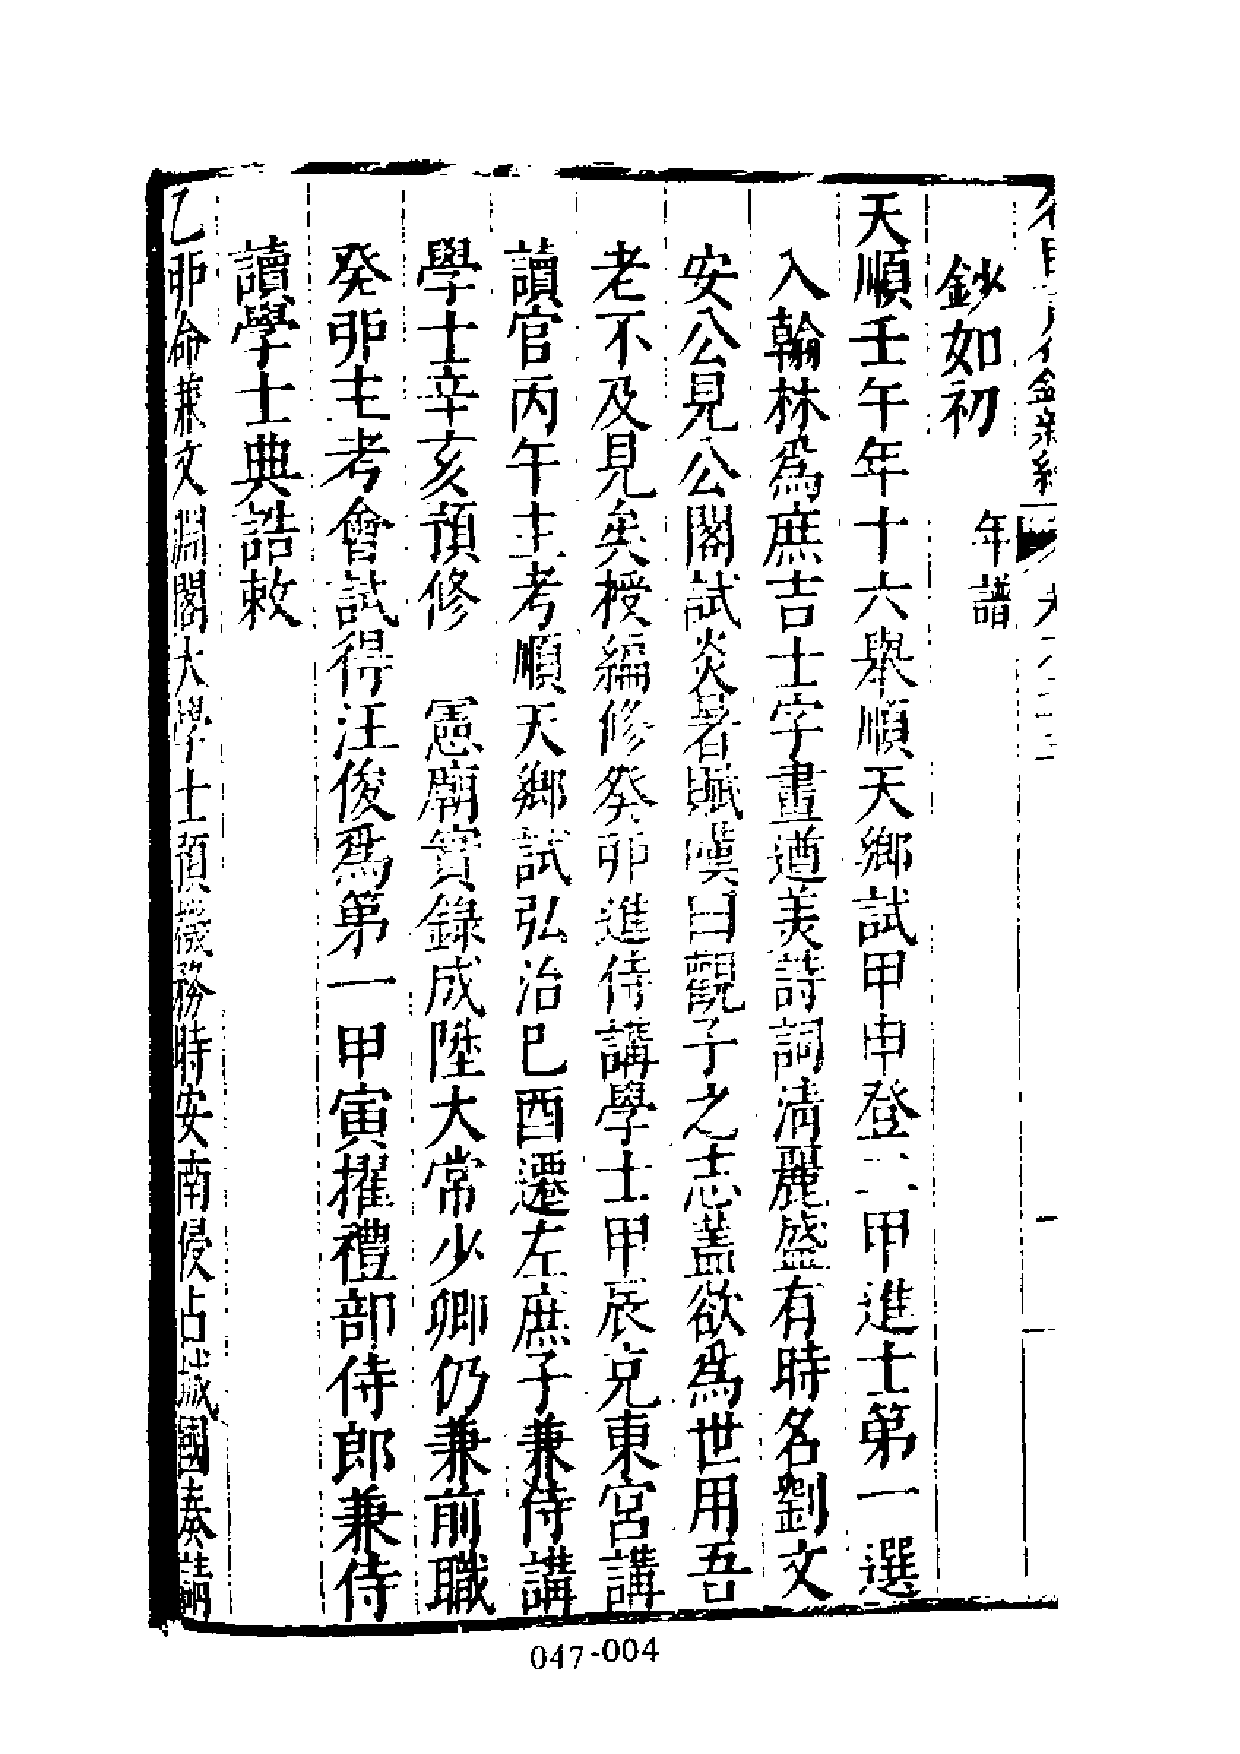 鈔如初　年譜
天順壬午年十六舉順天鄉試甲申登二甲進士第一選
入翰林爲庶吉士字畫遒美詩詞清麗盛有時名劉文
安公見公閣試炎暑賦嘆曰觀子之志蓋欲爲世用吾
老不及見矣授編修癸卯進侍講學士甲辰充東宮講
讀官丙午主考順天鄉試弘治己酉遷左庶子兼侍講
學士辛亥預修　憲廟實錄成陞大常少卿仍兼前職
癸卯主考會試得汪俊爲第一甲寅擢禮部侍郎兼侍
讀學士典誥敕
乙卯命兼文淵閣大學士預機務時安南侵占城國奏請
047-004